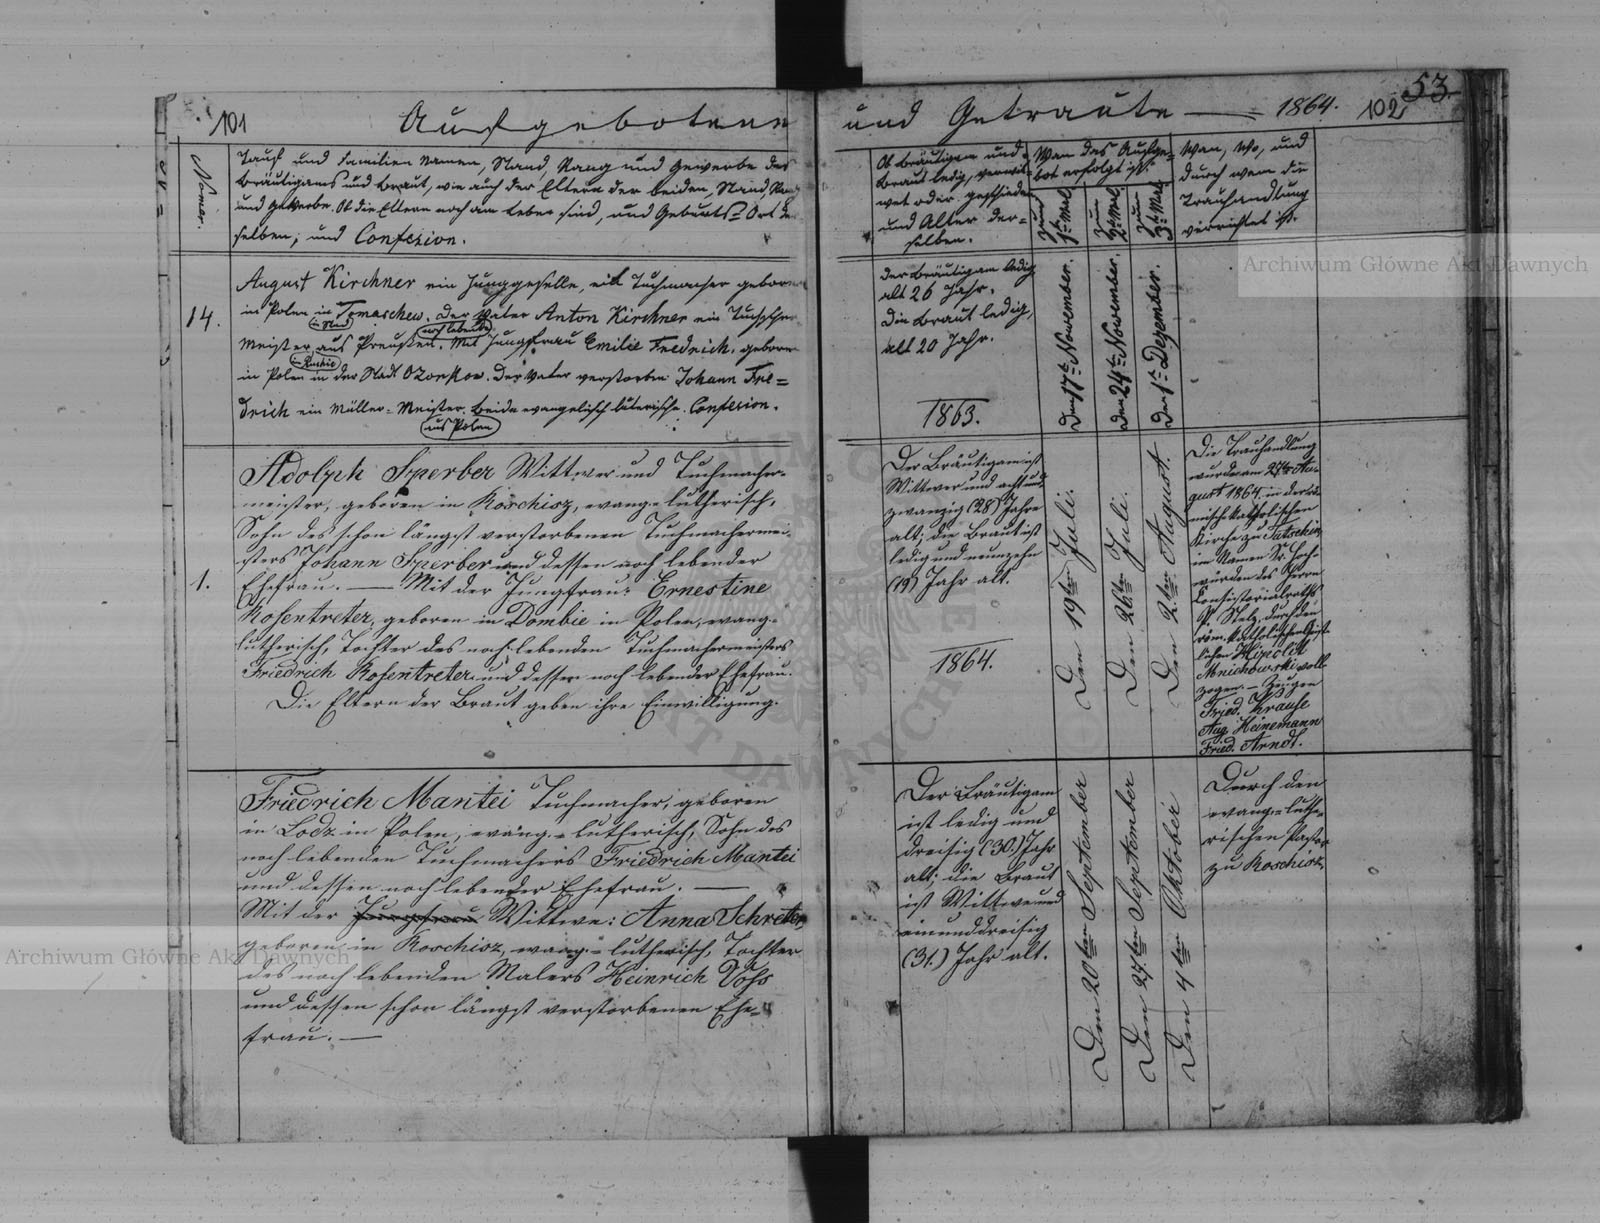 101
Aufgebotene
Nomer.
Tauf und Familien Namen, Stand, Rang und Gewerbe des
Bräutigams und Braut, wie auch der Eltern der beiden, Stand, Rang
und Gewerbe. Ob die Eltern noch am Leben sind, und Geburts-Ort der-
selben, und Confession.
14.
August Kirchner ein Junggeselle, ein Tuchmacher geboren
in Polen in Tomaschew. Der Vater Anton Kirchner ein
in Stad
noch lebende
Meister aus Preußen. Mit Jungfrau Emilie Fredrich, geboren
in Polen in der Stadt Ozorkow. Der Vater verstorben Johann Fre=
drich ein Müller-Meister. Beide evangelisch luterische. Confesion.
aus Polen
Adolph Sperber Wittwer und Tuchmacher-
meister, geboren in Roschisz, evang-lutherisch,
Sohn des schon längst verstorbenen Tuchmachermei-
sters Johann Sperber und dessen noch lebender
1.
Ehefrau. — Mit der Jungfrau: Ernestine
Rosentreter, geboren in Dombie in Polen, evang-
lutherisch, Tochter des noch lebenden Tuchmachermeisters
Friedrich Rosentreter und dessen noch lebender Ehefrau.
Die Eltern der Braut geben ihre Einwilligung.
Friedrich Mantei Tuchmacher, geboren
in Lodz in Polen, evang-lutherisch, Sohn des
noch lebenden Tuchmachers Friedrich Mantei
und dessen noch lebender Ehefrau. —
Mit der Jungfrau Wittwe: Anna Schreter,
geboren in Roschisz, evang-lutherisch, Tochter
des noch lebenden Malers Heinrich Vohs
und dessen schon längst verstorbenen Ehe-
frau. —
53.
und Getraute — 1864. 102
Ob Bräutigam und
Braut ledig, verwit-
wet oder geschieden
und Alter der-
selben.
Wan das Aufge-
bot erfolgt ist.
zum 1te Mal.
zum 2te Mal.
zum 3te Mal.
Wan, Wo, und
durch wem die
Trauhandlung
verrichtet ist.
der Bräutigam ledig
alt 26 Jahr.
Die Braut ledig,
alt 20 Jahr.
1863.
Den 17te November.
den 24te November.
Der 1te Dezember.
Der Bräutigam ist
Wittwer und acht und
zwanzig (28) Jahre
alt; die Braut ist
ledig und neunzehn
(19) Jahr alt.
1864.
Den 19ten Juli.
Den 26ten Juli.
Den 2ten August.
Die Trauhandlung
wurde am 27ten Au-
gust 1864 in der rö-
mischkatholischen
Kirche zu Tutschin
im Namen Sr. Hoch-
würden des Herrn
Konsistorialraths
P. Stelz, durch den
röm. katholischen Geist-
lichen Hipolit
Mnichowski voll-
zogen. — Zeugen
Fried. Krause
Aug. Heinemann
Fried. Arndt.
Der Bräutigam
ist ledig und
dreisig (30.) Jahr
alt; die Braut
ist Wittwe und
einunddreisig
(31.) Jahr alt.
Den 20ten September
Den 27ten September
Den 4ten Oktober
Durch den
evang-luthe-
rischen Pastor
zu Roschisz
Archiwum Główne Akt Dawnych
Archiwum Główne Akt Dawnych